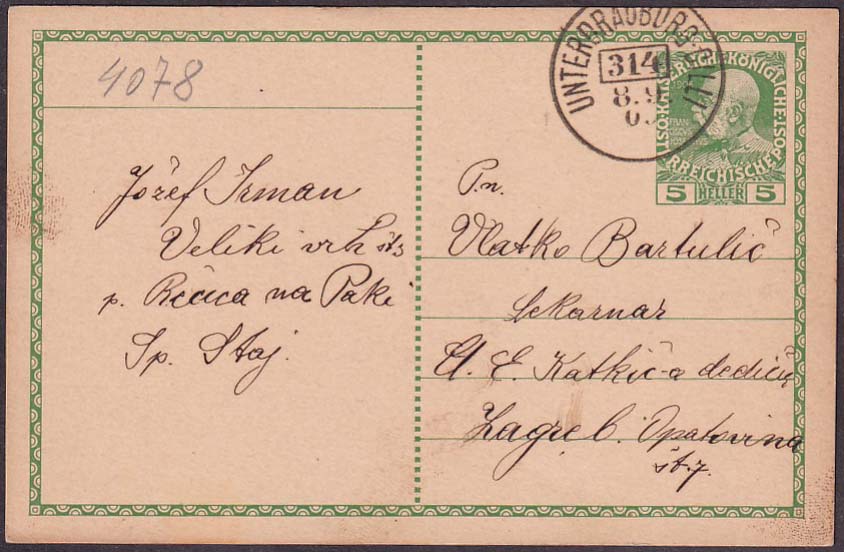 4078
Jožef Irman
Veliki vrh št 3
p. Rečica na Paki
Sp. Štaj.
UNTERDRAUBURG-CILLI
314
8. 9
KAISERLICHE KÖNIGLICHE ÖSTERREICHISCHE POST
5 HELLER 5
P.n.
Vlatko Bartulić
lekarnar
E. Katkić-a dedič
Zagreb. Opatovina
št. 7.